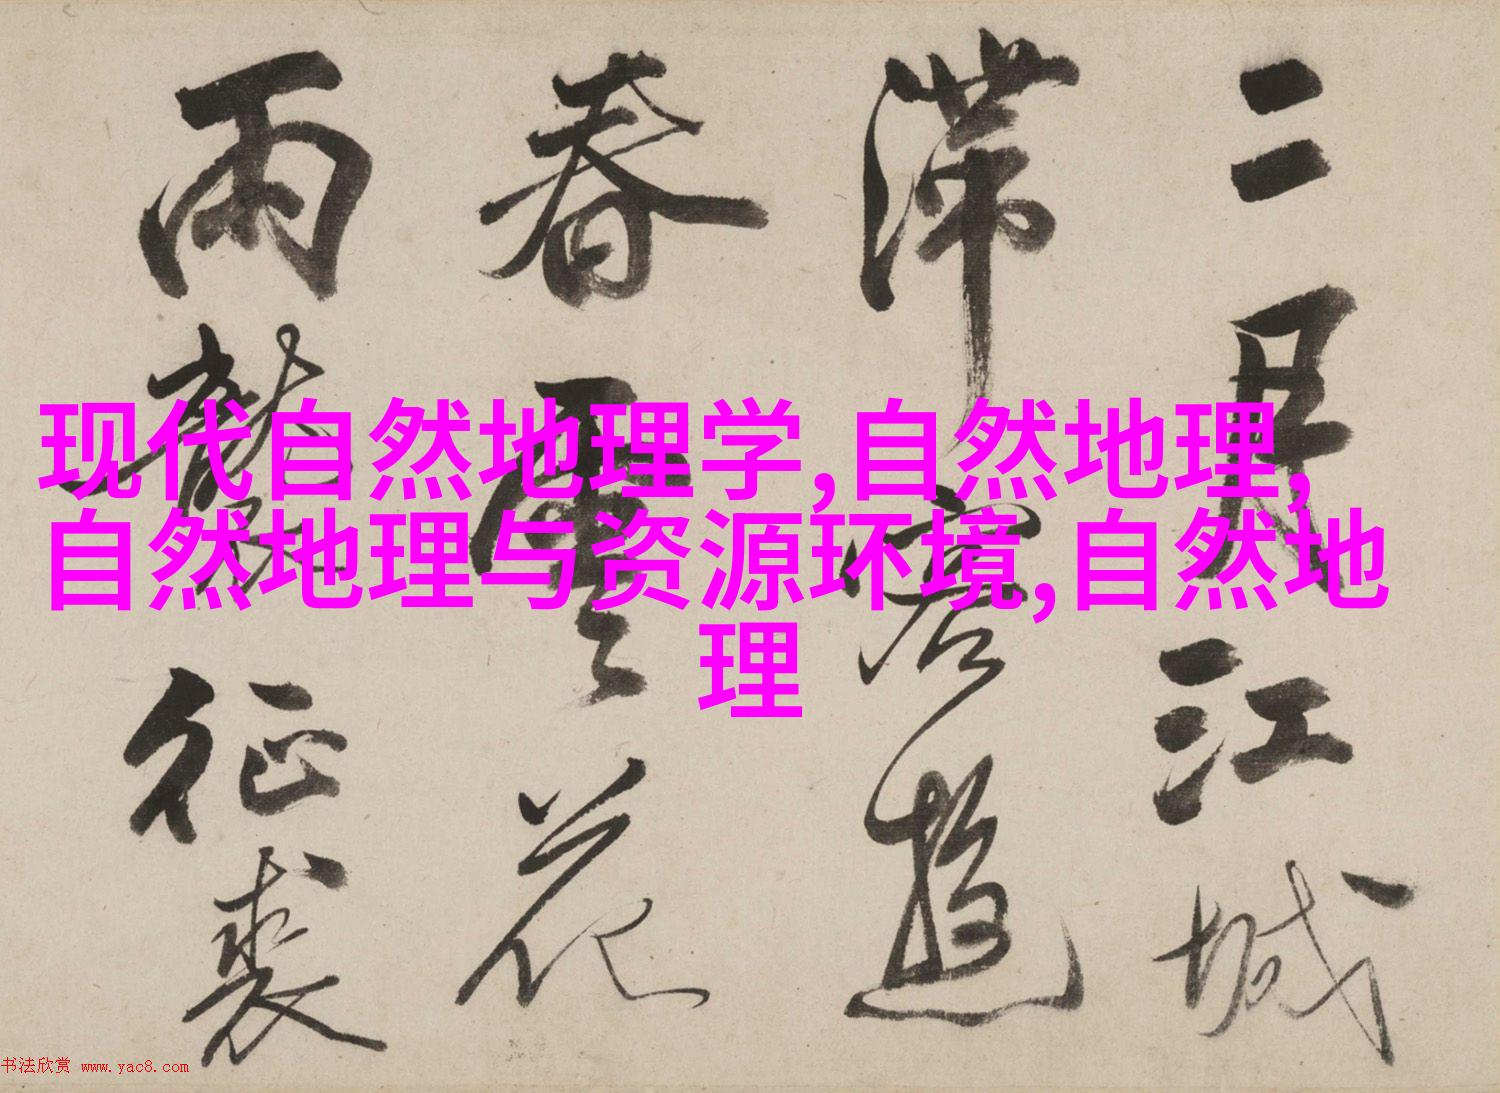 现代自然地理学,自然地理,
自然地理与资源环境,自然地
理
二月江城
滞客遊
春雲花
雨襲征裘
书法欣赏 www.yac8.com